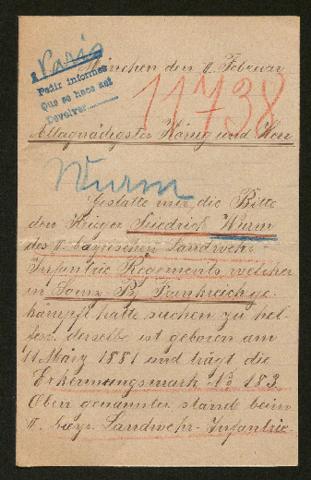 Paris
Pedir informes
Que se hace así
Devolver
München den 8. Februar
11738
Allagnädigster König und Herr
Wurm
Gestatte mir, die Bitte
den Krieger Friedrich Wurm
des II. bayrischen Landwehr
Infantrie Regements welcher
in Fankreich ge-
kämpft hatte suchen zu hel-
fen. derselbe ist geboren am
11 März 1881 und trägt die
Erkennungsmark No 183.
Oben genannter stand beim
II. bayr. Landwehr-Infantrie-